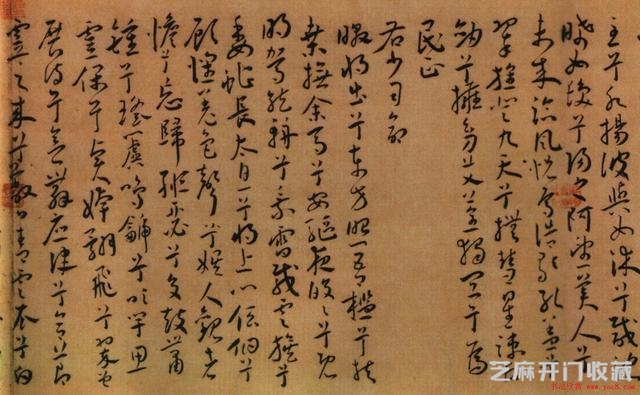 至兮水揚波與女沐兮咸
晞女髮兮陽之阿望美人兮
未來臨風怳兮浩歌孔蓋兮
翠旍登九天兮撫彗星竦
劍兮擁幼艾蓀獨宜兮為
民正
右少司命
暾將出兮東方照吾檻兮扶
桑撫余馬兮安驅夜皎皎兮既
明駕龍輈兮乘雷載雲旗兮
委蛇長太息兮將上心低佪兮
顧懷羌色聲兮娛人觀者
憺兮忘歸緪瑟兮交鼓簫
鍾兮瑤簴鳴篪兮吹竽思
靈保兮賢姱翾飛兮翠曾
展詩兮會舞應律兮合節
靈之來兮蔽日青雲衣兮白
芝麻开门收藏